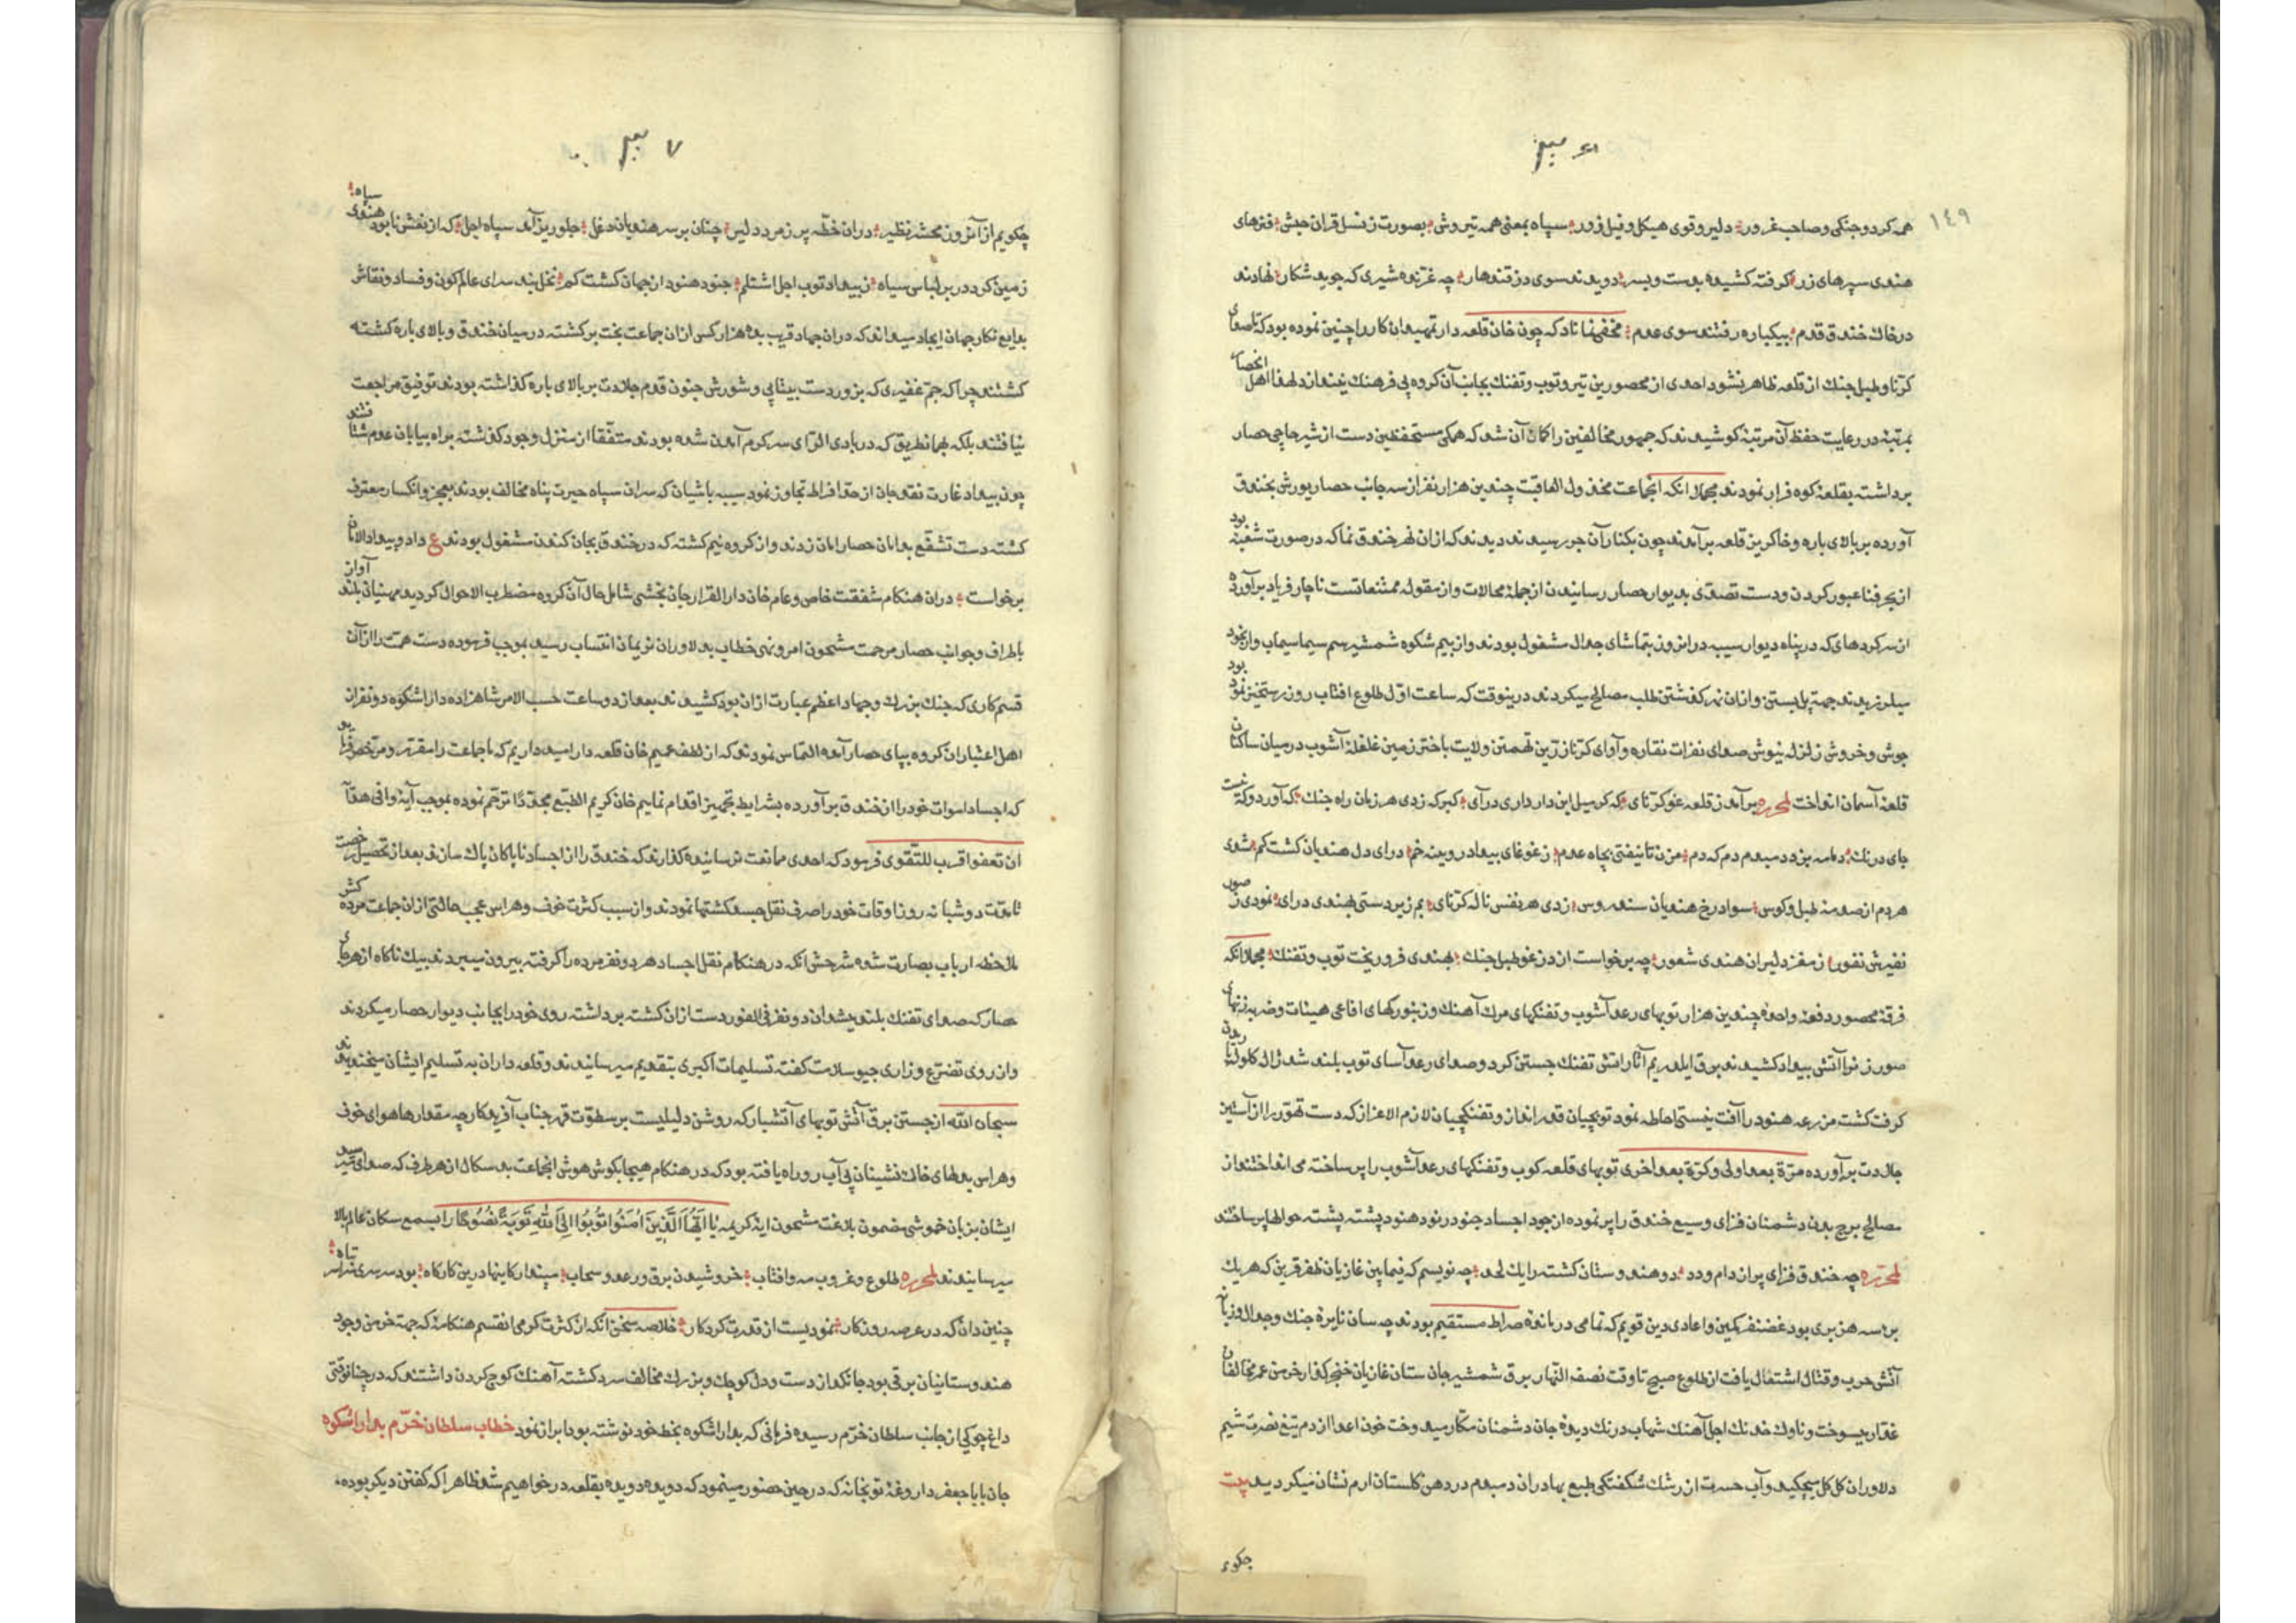 ١٤٩
همه کرد و جنکی و صاحب غرور دلیر و قوی هیکل و فیل زور سپاه بمعنی همه تیروش بصورت ز نسل قران حبش فترهای
هندی سپرهای زر کرفته کشیده بدست و بسر دویدند سوی دز قندهار چه غرنده شیری که جوید شکار نهادند
در خاک خندق قدم بیکباره رفتند سوی عدم مخفی نماناد که چون خان قلعه دار تمهید ان کار را چنین نموده بود که تا صدای
کرنا و طبل جنک از قلعه ظاهر نشود احدی از محصورین تیر و توب و تفنک بجانب آن کروه بی فرهنک نیندازد لهذا اهل انحصار
بمرتبهٔ در رعایت حفظ آن مرتبهٔ کوشیدند که جمهور مخالفین را کمان آن شد که همکی مستحفظین دست از شیر حاجی حصار
برداشته بقلعهٔ کوه فرار نمودند مجملا انکه انجماعت مخذول العاقبت چندین هزار نفر از سه جانب حصار یورش بخندق
آورده بر بالای باره و خاکریز قلعه برآمدند چون بکنار آن جر رسیدند دیدند که ازان نهر خندق نما که در صورت شعبهٔ بود
از بحر فنا عبور کردن و دست تصدی بدیوار حصار رسانیدن از جملهٔ محالات و از مقولهٔ ممتنعاتست ناچار فریاد برآورده
از سرکردهای که در پناه دیوار سیبه دران روز بتماشای جدال مشغول بودند و از بیم شکوه شمشیر سیماب وار بخود
میلرزیدند جهت پل بستن و ازان نهر کذشتن طلب مصالح میکردند درینوقت که ساعت اول طلوع افتاب روز رستخیز نمود بود
جوش و خروش زلزله نیوش صدای نفرات نقاره و آوای کرنا از زمین تهمتن ولایت باختر زمین غلغلهٔ آشوب در میان ساکنان
قلعهٔ آسمان انداخت لمحرره برآمد ز قلعه غو کرنای که کر میل این دار داری درآی کبر که زدی هر زمان راه جنک که آورد وکه نیست
جای درنک دمامه بزد دمبدم دم که دم مزن تا نیفتی بچاه عدم ز غوغای بیداد رویینه خم درای دل هندیان کشت کم شدی
هردم از صدمهٔ طبل و کوس سواد رخ هندیان سندروس زدی هر نفس ناله کرنای بم زیردستی بهندی درای نمودی ز صور
نفیرش نفور ز مغز دلیران هندی شعور چه برخواست از دز غو طبل جنک بهندی فرو ریخت توب و تفنک مجملا انکه
فرقهٔ محصور دفعهٔ واحده چندین هزار توبهای رعد آشوب و تفنکهای مرک آهنک و زنبورکهای افاعی هیئات و ضربه زنهای
صور نوا آتش بیداد کشیدند برق آثار اتش تفنک جستن کرد و صدای رعد آسای توب بلند شد ژاله کلوله
کرفت کشت مزرعهٔ هنود را آفت نیستی احاطه نمود توبچیان قدر انداز و تفنکچیان لازم الاعزاز که دست تهور را از آستین
جلادت برآورده مرة بعد اولی و کرة بعد اخری توبهای قلعه کوب و تفنکهای رعد آشوب را پر ساخته می انداختند از
مصالح برج بدن دشمنان فزای وسیع خندق را پر نموده از جود اجساد جنود نمرود هنود پشته پشته حوالها بر ساختند
لمحرره چه خندق فزای پر از دام و دد دو هندوستان کشته را یک لحد چه نویسم که فیمابین غازیان ظفر قرین که هریک
بر سه هزبری بود غضنفر کمین و اعادی دین قویم که تمامی در باندهٔ صراط مستقیم بودند چه سان نایرهٔ جنک و جدال و زبانهٔ
آتش حرب و قتال اشتغال یافت از طلوع صبح تا وقت نصف النهار برق شمشیر جان ستان غازیان خنجرکذار خرمن عمر مخالفان
غدار میسوخت و ناوک خدنک اجل آهنک شهاب درنک دیدهٔ جان دشمنان مکار میدوخت خون اعدا از دم تیغ نصرت شیم
دلاوران کل کل میچکید و آب حسرت از رشک شکفتکی طبع بهادران دمبدم در دهن کلستان ارم نشان میکردید بیت
چکویم
٧
چکویم از آن روز محشر نظیر دران خطه پر ز مرد دلیر چنان بر سر هندیان دغل جلوریز آمد سپاه اجل که از نعش نابود هندوی سیاه
زمین کرد در بر لباس سیاه ز بیداد توب اجل اشتلم جنود هنود از جهان کشت کم نخل بند سرای عالم کون و فساد و نقاش
بدایع نکار جهان ایجاد میداند که دران جهاد قریب بده هزار کس ازان جماعت بخت برکشته در میان خندق و بالای باره کشته
کشتند چرا که جم غفیری که بزور دست بیتابی و شورش جنون قدم جلادت بر بالای باره کذاشته بودند توفیق مراجعت
نیافتند بلکه بهمان طریق که در بادی الرای سرکرم آمدن شده بودند متفقا از منزل وجود کذشته براه بیابان عدم شتافتند
چون بیداد غارت نقد جان از حد افراط تجاوز نمود سیبه باشیان که سران سپاه حیرت پناه مخالف بودند بعجز و انکسار معترف
کشته دست تشفع بدامان حصار امان زدند و از کروه نیم کشته که در خندق بجان کندن مشغول بودند ع داد و بیداد الامان
برخواست دران هنکام شفقت خاص و عام خان دارالقرار جان بخشی شامل حال آن کروه مضطرب الاحوال کردید منهیان بلند آواز
باطراف و جوانب حصار مرحمت مشحون امر و نهی خطاب بدلاوران نریمان انتساب رسید بموجب فرموده دست همت را از آن
قسم کاری که جنک بزرک و جهاد اعظم عبارت ازان بود کشیدند بعد از دو ساعت حسب الامر شاهزاده دارا شکوه دو نفر از
اهل اعتبار ان کروه بپای حصار آمده التماس نمودند که از لطف عمیم خان قلعه دار امیدواریم که ما جماعت را مقرر و مرخص فرمایند
که اجساد اموات خود را از خندق برآورده بشرایط تجهیز اقدام نماییم خان کریم الطبع مجددا ترحم نموده بموجب آیهٔ وافی هدایهٔ
ان تعفوا اقرب للتقوی فرمود که احدی ممانعت نرسانیده کذارند که خندق را از اجساد ناپاکان پاک سازند بعد از تحصیل رخصت
تا مدت دو شبانه روز اوقات خود را صرف نقل جسد کشتها نمودند و از سبب کثرت خوف و هراس عجب حالتی ازان جماعت مرده کش
ملاحظه ارباب بصارت شده شرحش انکه در هنکام نقل اجساد هر دو نفر مرده را کرفته بیرون میبردند بیک ناکاه از هر جای
حصار که صدای تفنک بلند میشد ان دو نفر فی الفور دست ازان کشته برداشته روی خود را بجانب دیوار حصار میکردند
و از روی تضرع و زاری جیو سلامت کفته تسلیمات اکبری بتقدیم میرسانیدند و قلعه داران به تسلیم ایشان میخندیدند
سبحان الله از جستن برق آتش توبهای آتشبار که روشن دلیلیست بر سطوت قهر جناب آفریدکار چه مقدارها هوای خوف
و هراس بدلهای خاک نشینان بی آب رو راه یافته بود که در هنکام هیجا بکوش هوش انجماعت بد سکال از هر طرف که صدای میرسید
ایشان بزبان خموشی مضمون بلاغت مشحون ایهٔ کریمه یَا اَیُّهَا الَّذِینَ اٰمَنُوا تُوبُوا اِلَی اللهِ تَوبَةً نَصُوحًا را بسمع سکان عالم بالا
میرسانیدند لمحرره طلوع و غروب مه و افتاب خروشیدن برق و رعد و سحاب مپندار کاینها درین کارکاه بود سرسری
چنین دان که در عرصه روزکار نمودیست از قدرت کردکار خلاصه سخن انکه از کثرت کرمی انقسم هنکامهٔ که جهت خرمن وجود
هندوستانیان برقی بود جانکداز دست و دل کوچک و بزرک مخالف سرد کشته آهنک کوچ کردن داشتند که در چنان وقتی
داغ چوکی از جانب سلطان خرم رسیده فرمانی که بداراشکوه بخط خود نوشته بود ابراز نمود خطاب سلطان خرم بداراشکوه
جان بابا جعفر داروغهٔ توبخانه که در حین حضور مینمود که دویده دویده بقلعه در خواهیم شد ظاهرا که کفتن دیکر بوده